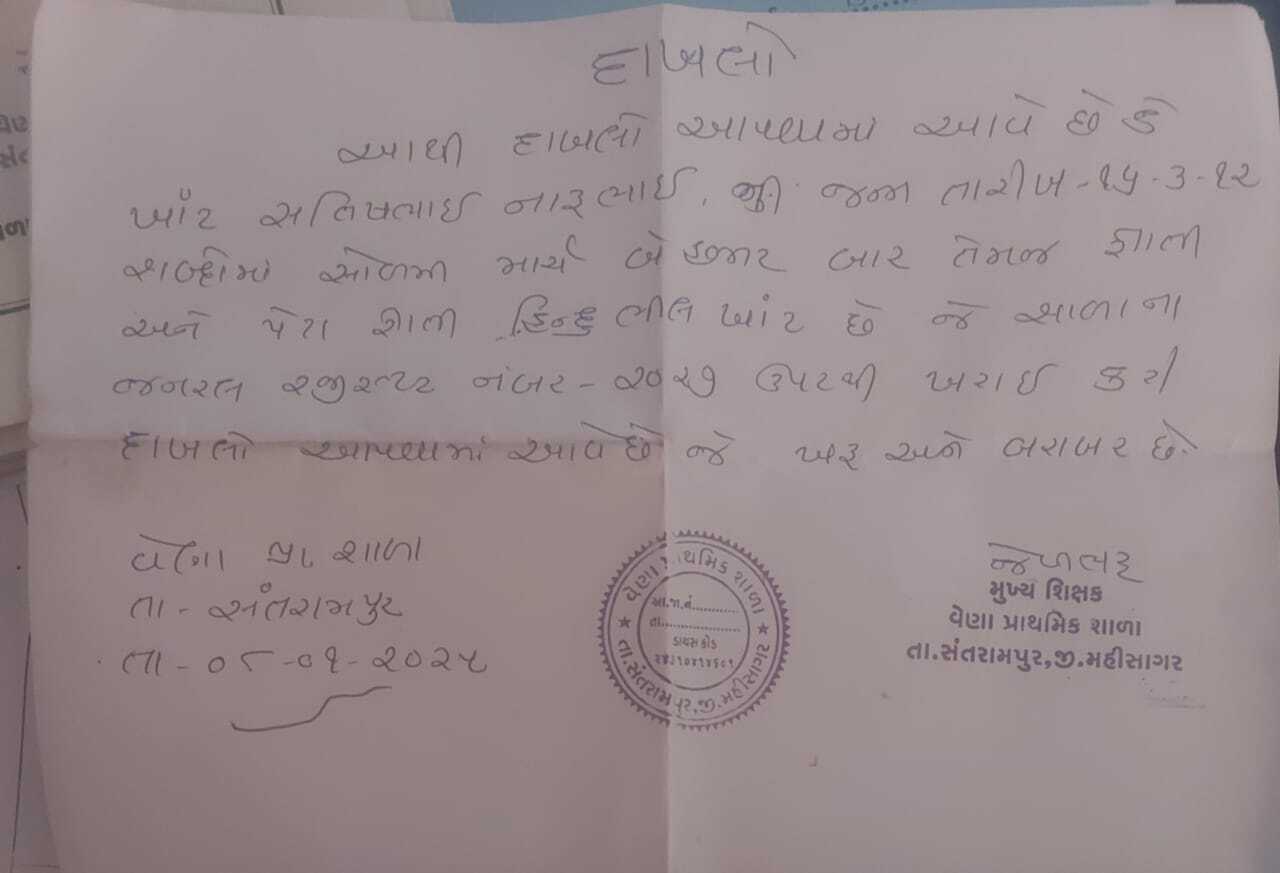 દાખલો
આથી દાખલો આપવામાં આવે છે કે
ખાંટ સતિષભાઈ નારૂભાઈ. ની જન્મ તારીખ - ૧૬-૩-૧૨
શબ્દોમાં સોળમી માર્ચ બે હજાર બાર તેમજ જ્ઞાતી
અને પેટા જ્ઞાતી હિન્દુ ભીલ ખાંટ છે જે શાળાના
જનરલ રજીસ્ટર નંબર - ૨૦૨૭ ઉપરથી ખરાઈ કરી
દાખલો આપવામાં આવે છે જે ખરૂ અને બરાબર છે.
વેણા પ્રા શાળા
તા - સંતરામપુર
તા - ૦૮ -૦૧ - ૨૦૨૫
વેણા પ્રાથમિક શાળા
આ.જા.નં...........
તા...................
ડાયસ કોડ
તા.સંતરામપુર,જી.મહીસાગર
મુખ્ય શિક્ષક
વેણા પ્રાથમિક શાળા
તા.સંતરામપુર,જી.મહીસાગર